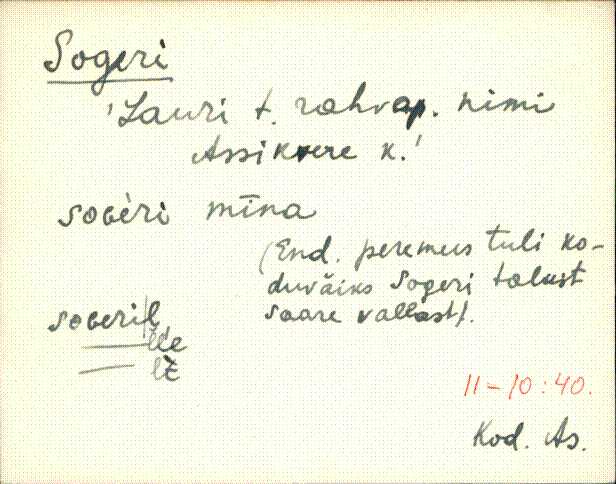 Sogeri
'Lauri t. rahvap. nimi
Assikvere k.'
sogèri mīna
(End. peremees tuli ko-
duväiks Sogeri talust
Saare vallast).
sogeri|l
—— lle
—— lt
11-10:40.
Kod. As.